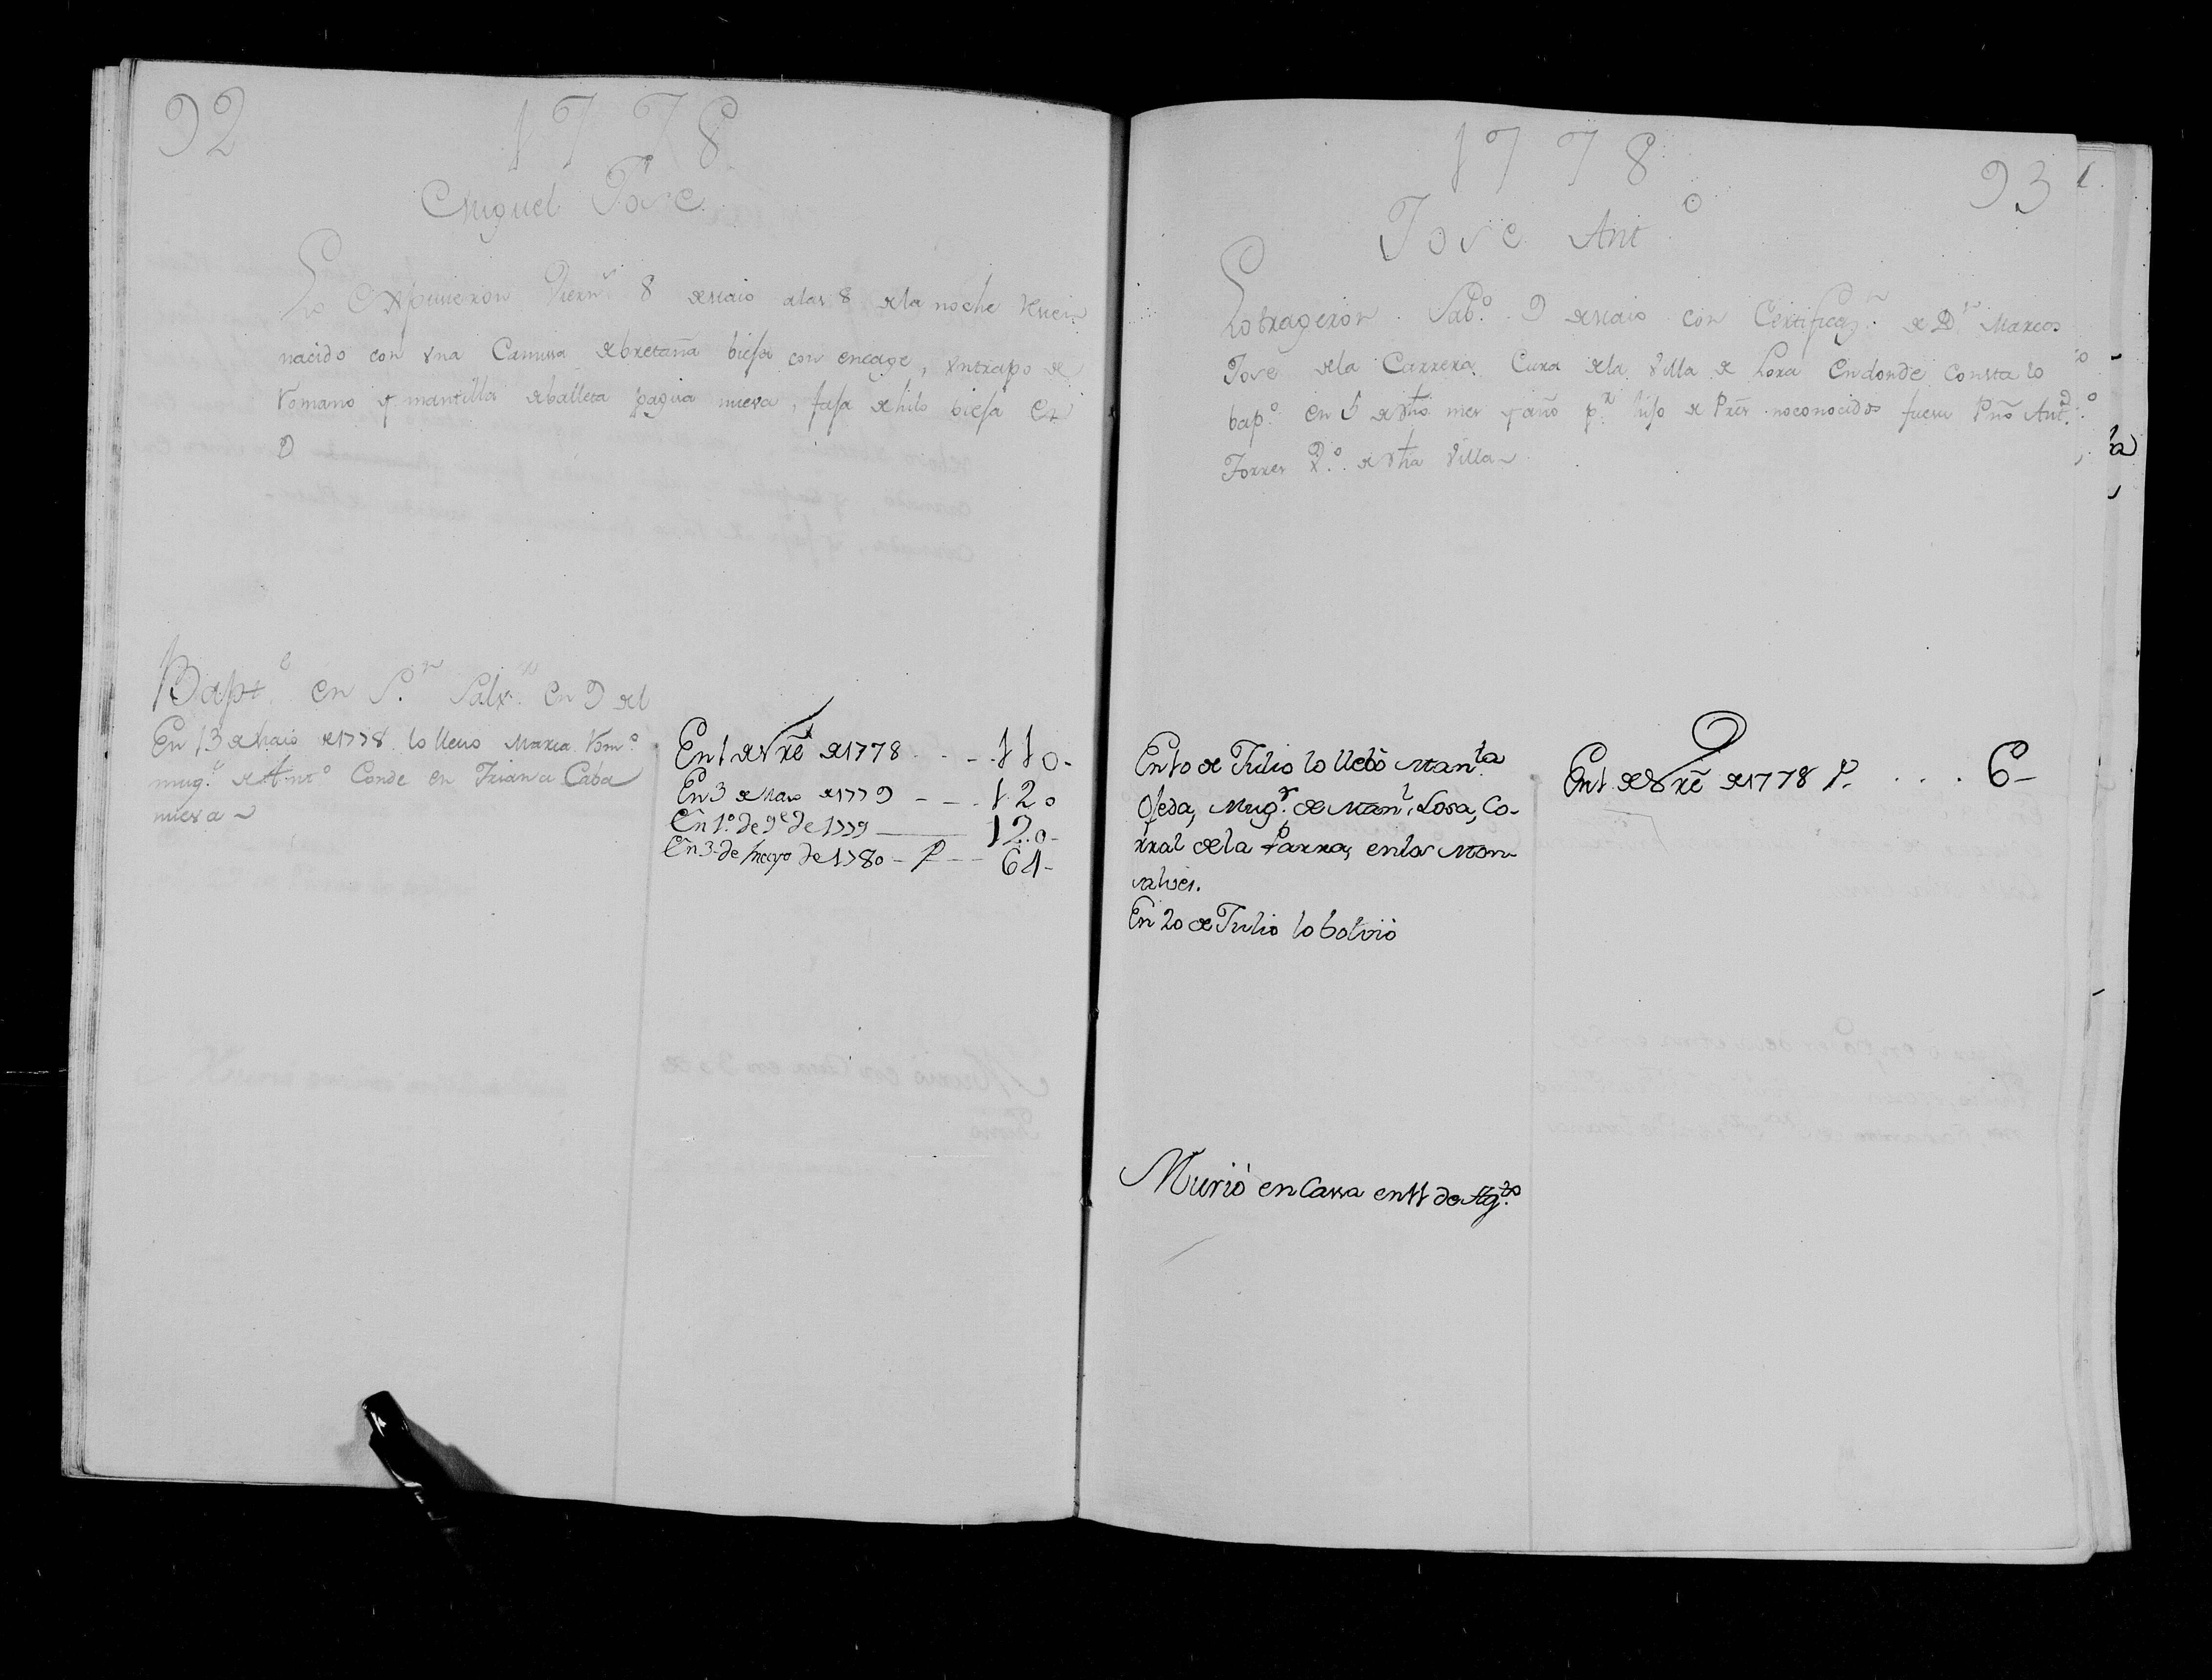 92
1778
Miguel Jose
Lo Expusieron Viern.s 8 de Maio a las 8 de la noche Recien
nacido con vna Camisa de bretaña biesa con encage, vn trapo de
Romano y mantilla de balleta pagisa nueva, fasa de hilo biesa en
9
Bapt.e en S.n Salv.r en 9 del
En 13 de Maio de 1778 lo llevo Maria Rom.o
mug.r de Ant.o Conde en Triana Caba
nueva
En 1 de Vre de 1778 - - - 110-
En 3 de Maio de 1779 - - - 120
En 1.o de 9e de 1779 —— 120-
En 3 de mayo de 1780 - P - - 61-
1778
93
Jose Ant.o
Lo trageron Sab.o 9 de Maio con Certificaz.n de D.n Marcos
Jose de la Carrera Cura de la Villa de Lora en donde consta lo
bap.o en 5 de dho mes y año p.r hijo de Pres. no conocidos fue su Pno Ant.o
Torres V.o de dha Villa
En 10 de Julio lo llebò Man.la
Ojeda, Mug.r de Man.l Losa, Co-
rral de la Parra, en los Mon-
salves.
En 20 de Julio lo bolviò
En 1 de Vre de 1778 P. . . . . 6-
Muriò en Cassa en 11 de Ag.to